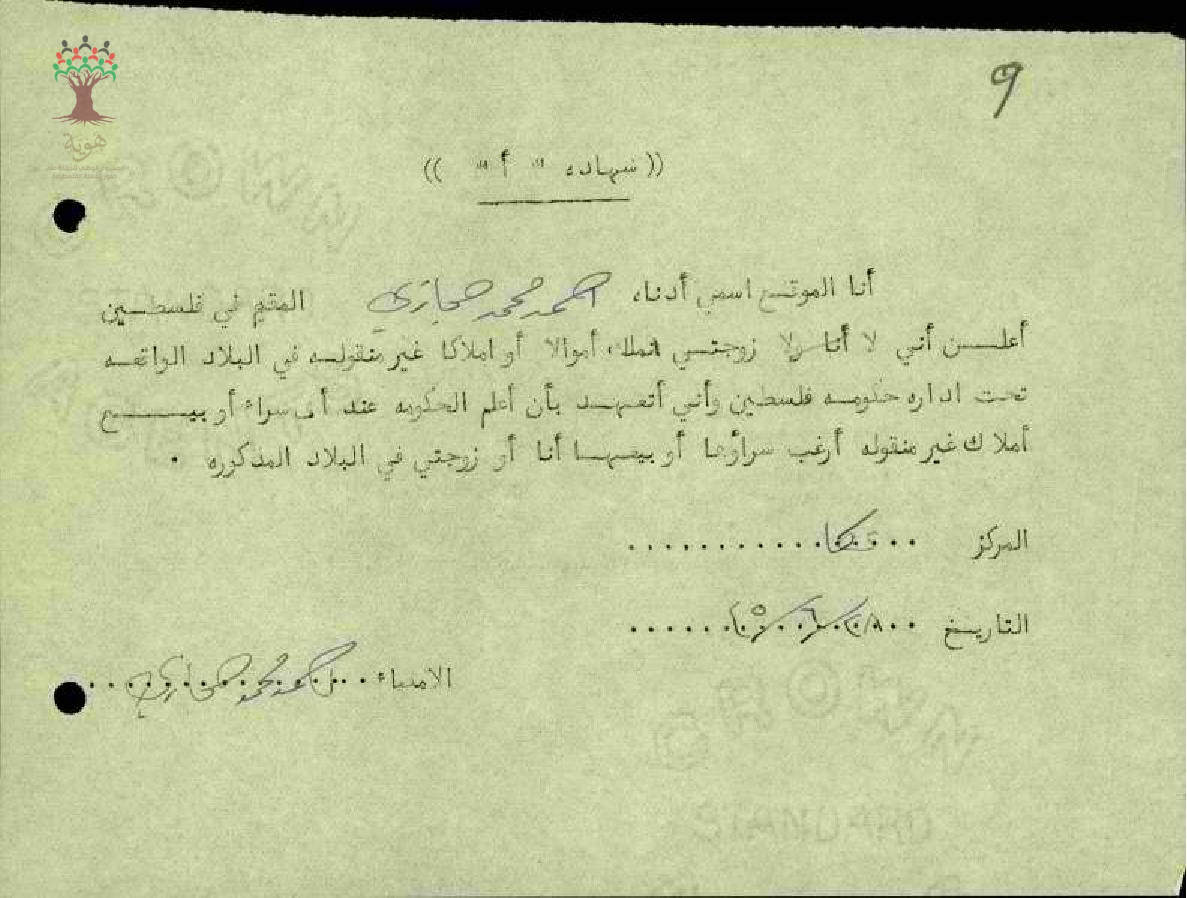 9
هوية
(( شهاده " أ " ))
أنا الموقع اسمي أدناه احمد محمد حجازي المقيم في فلسطين
أعلن أني لا أنا ولا زوجتي نملك أموالا أو املاكا غير منقوله في البلاد الواقعه
تحت اداره حكومه فلسطين وأني أتعهد بأن أعلم الحكومه عند أى شراء أو بيع
أملاك غير منقوله أرغب شراؤها أو بيعها أنا أو زوجتي في البلاد المذكوره .
المركز عكا
التاريخ
الامضاء احمد محمد حجازي